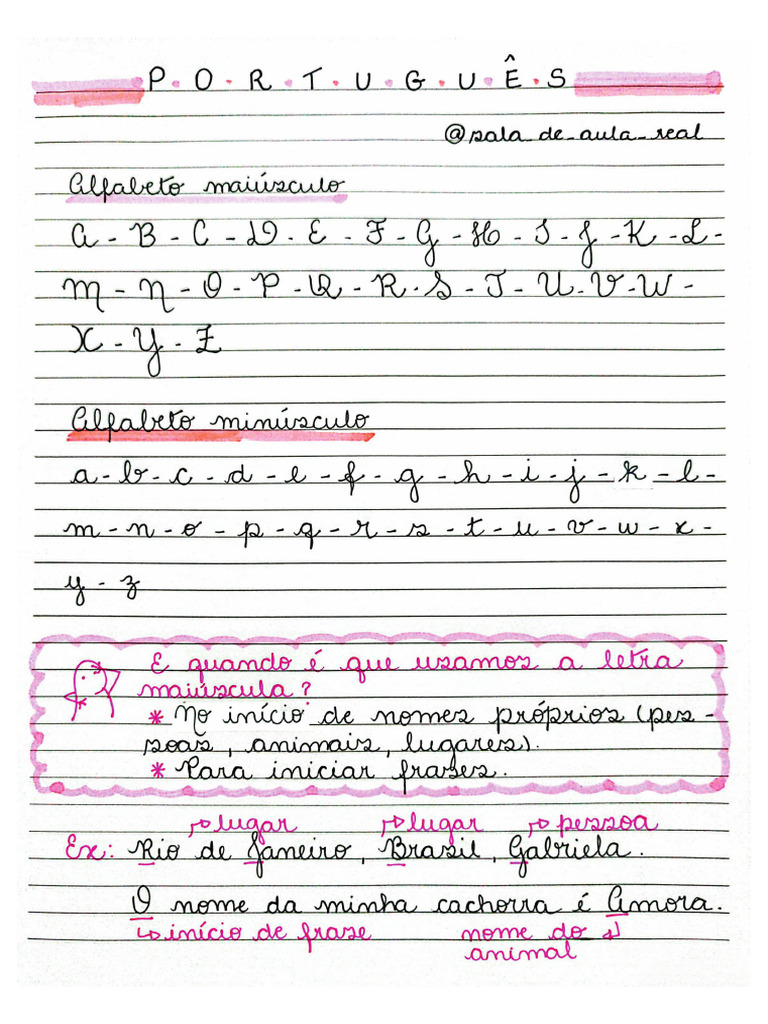 P · O · R · T · U · G · U · Ê · S
@sala_de_aula_real
Alfabeto maiúsculo
A - B - C - D - E - F - G - H - I - J - K - L -
M - N - O - P - Q - R - S - T - U - V - W -
X - Y - Z
Alfabeto minúsculo
a - b - c - d - e - f - g - h - i - j - k - l -
m - n - o - p - q - r - s - t - u - v - w - x -
y - z
E quando é que usamos a letra
maiúscula?
* No início de nomes próprios (pes-
soas, animais, lugares).
* Para iniciar frases.
↳ lugar ↳ lugar ↳ pessoa
Ex: Rio de Janeiro, Brasil, Gabriela.
O nome da minha cachorra é Amora.
↳ início de frase nome do ↲
animal